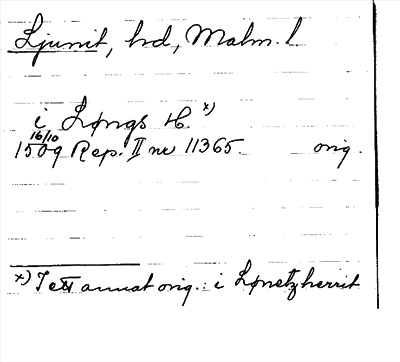 Ljunit, hd, Malm. l
i Løngs H. x)
16/10
1509 Rep. II nr 11365. orig.
x) I ett annat orig.: i Lønetzherrit